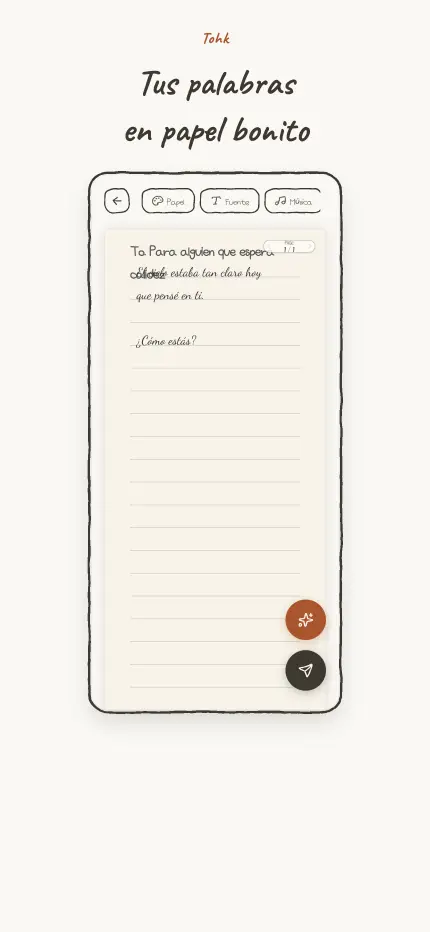 Tohk
Tus palabras
en papel bonito
Papel Fuente Música
To Para alguien que espera
1 / 1
calidez
estaba tan claro hoy
que pensé en ti.
¿Cómo estás?